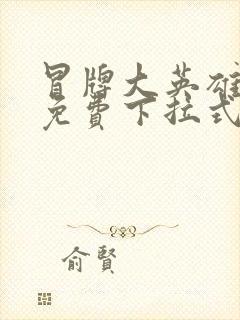 冒牌大英雄
免費下拉式
俞賢